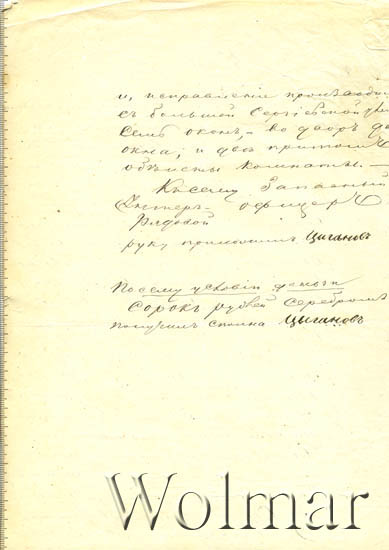 и, исправление производи
съ большой Сергiевской ули
семь оконъ, - во дворъ д
окна; и два притомъ
объисты комнаты. -
Къ сему Запасный
Унтеръ-офицеръ
Рядовой
руку приложилъ Цыгановъ
По сему условiю деньги
сорокъ рублей серебромъ
получилъ сполна Цыгановъ
Wolmar